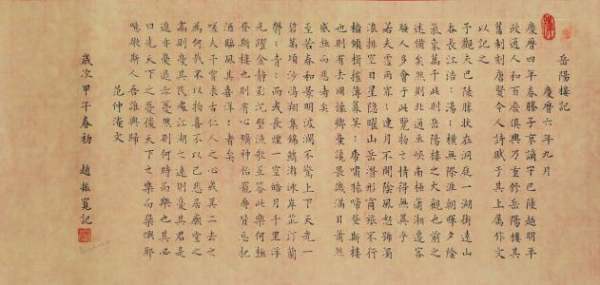 岳陽樓記
慶曆六年九月
慶曆四年春滕子京謫守巴陵越明年
政通人和百廢俱興乃重修岳陽樓其
舊制刻唐賢今人詩賦于其上屬作文
以記之
予觀夫巴陵勝狀在洞庭一湖銜遠山
吞長江浩：湯：橫無際涯朝暉夕陰
氣象萬千此則岳陽樓之大觀也前之
述備矣然則北通巫峽南極瀟湘遷客
騷人多會于此覽物之情得無異乎
若夫霪雨霏：連月不開陰風怒號濁
浪排空日星隱曜山岳潛形商旅不行
檣傾楫摧薄暮冥：虎嘯猿啼登斯樓
也則有去國懷鄉憂讒畏譏滿目蕭然
感極而悲者矣
至若春和景明波瀾不驚上下天光一
碧萬頃沙鷗翔集錦鱗游泳岸芷汀蘭
郁：青：而或長煙一空皓月千里浮
光躍金靜影沉璧漁歌互答此樂何極
登斯樓也則有心曠神怡寵辱皆忘把
酒臨風其喜洋：者矣
嗟夫予嘗求古仁人之心或異二者之
為何哉不以物喜不以己悲居廟堂之
高則憂其民處江湖之遠則憂其君是
進亦憂退亦憂然則何時而樂耶其必
曰先天下之憂而憂後天下之樂而樂乎
噫微斯人吾誰與歸
范仲淹文
歲次甲午春初 趙振 記